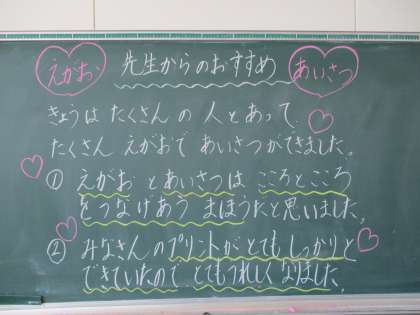 えがお 先生からのおすすめ あいさつ
きょうは たくさん の 人とあって、
たくさん えがおで あいさつができました。
① えがお とあいさつは こころとこころ
をつなげあう まほうだと思いました。
② みなさんのプリントが とても しっかりと
できていたので とてもうれしく なりました。